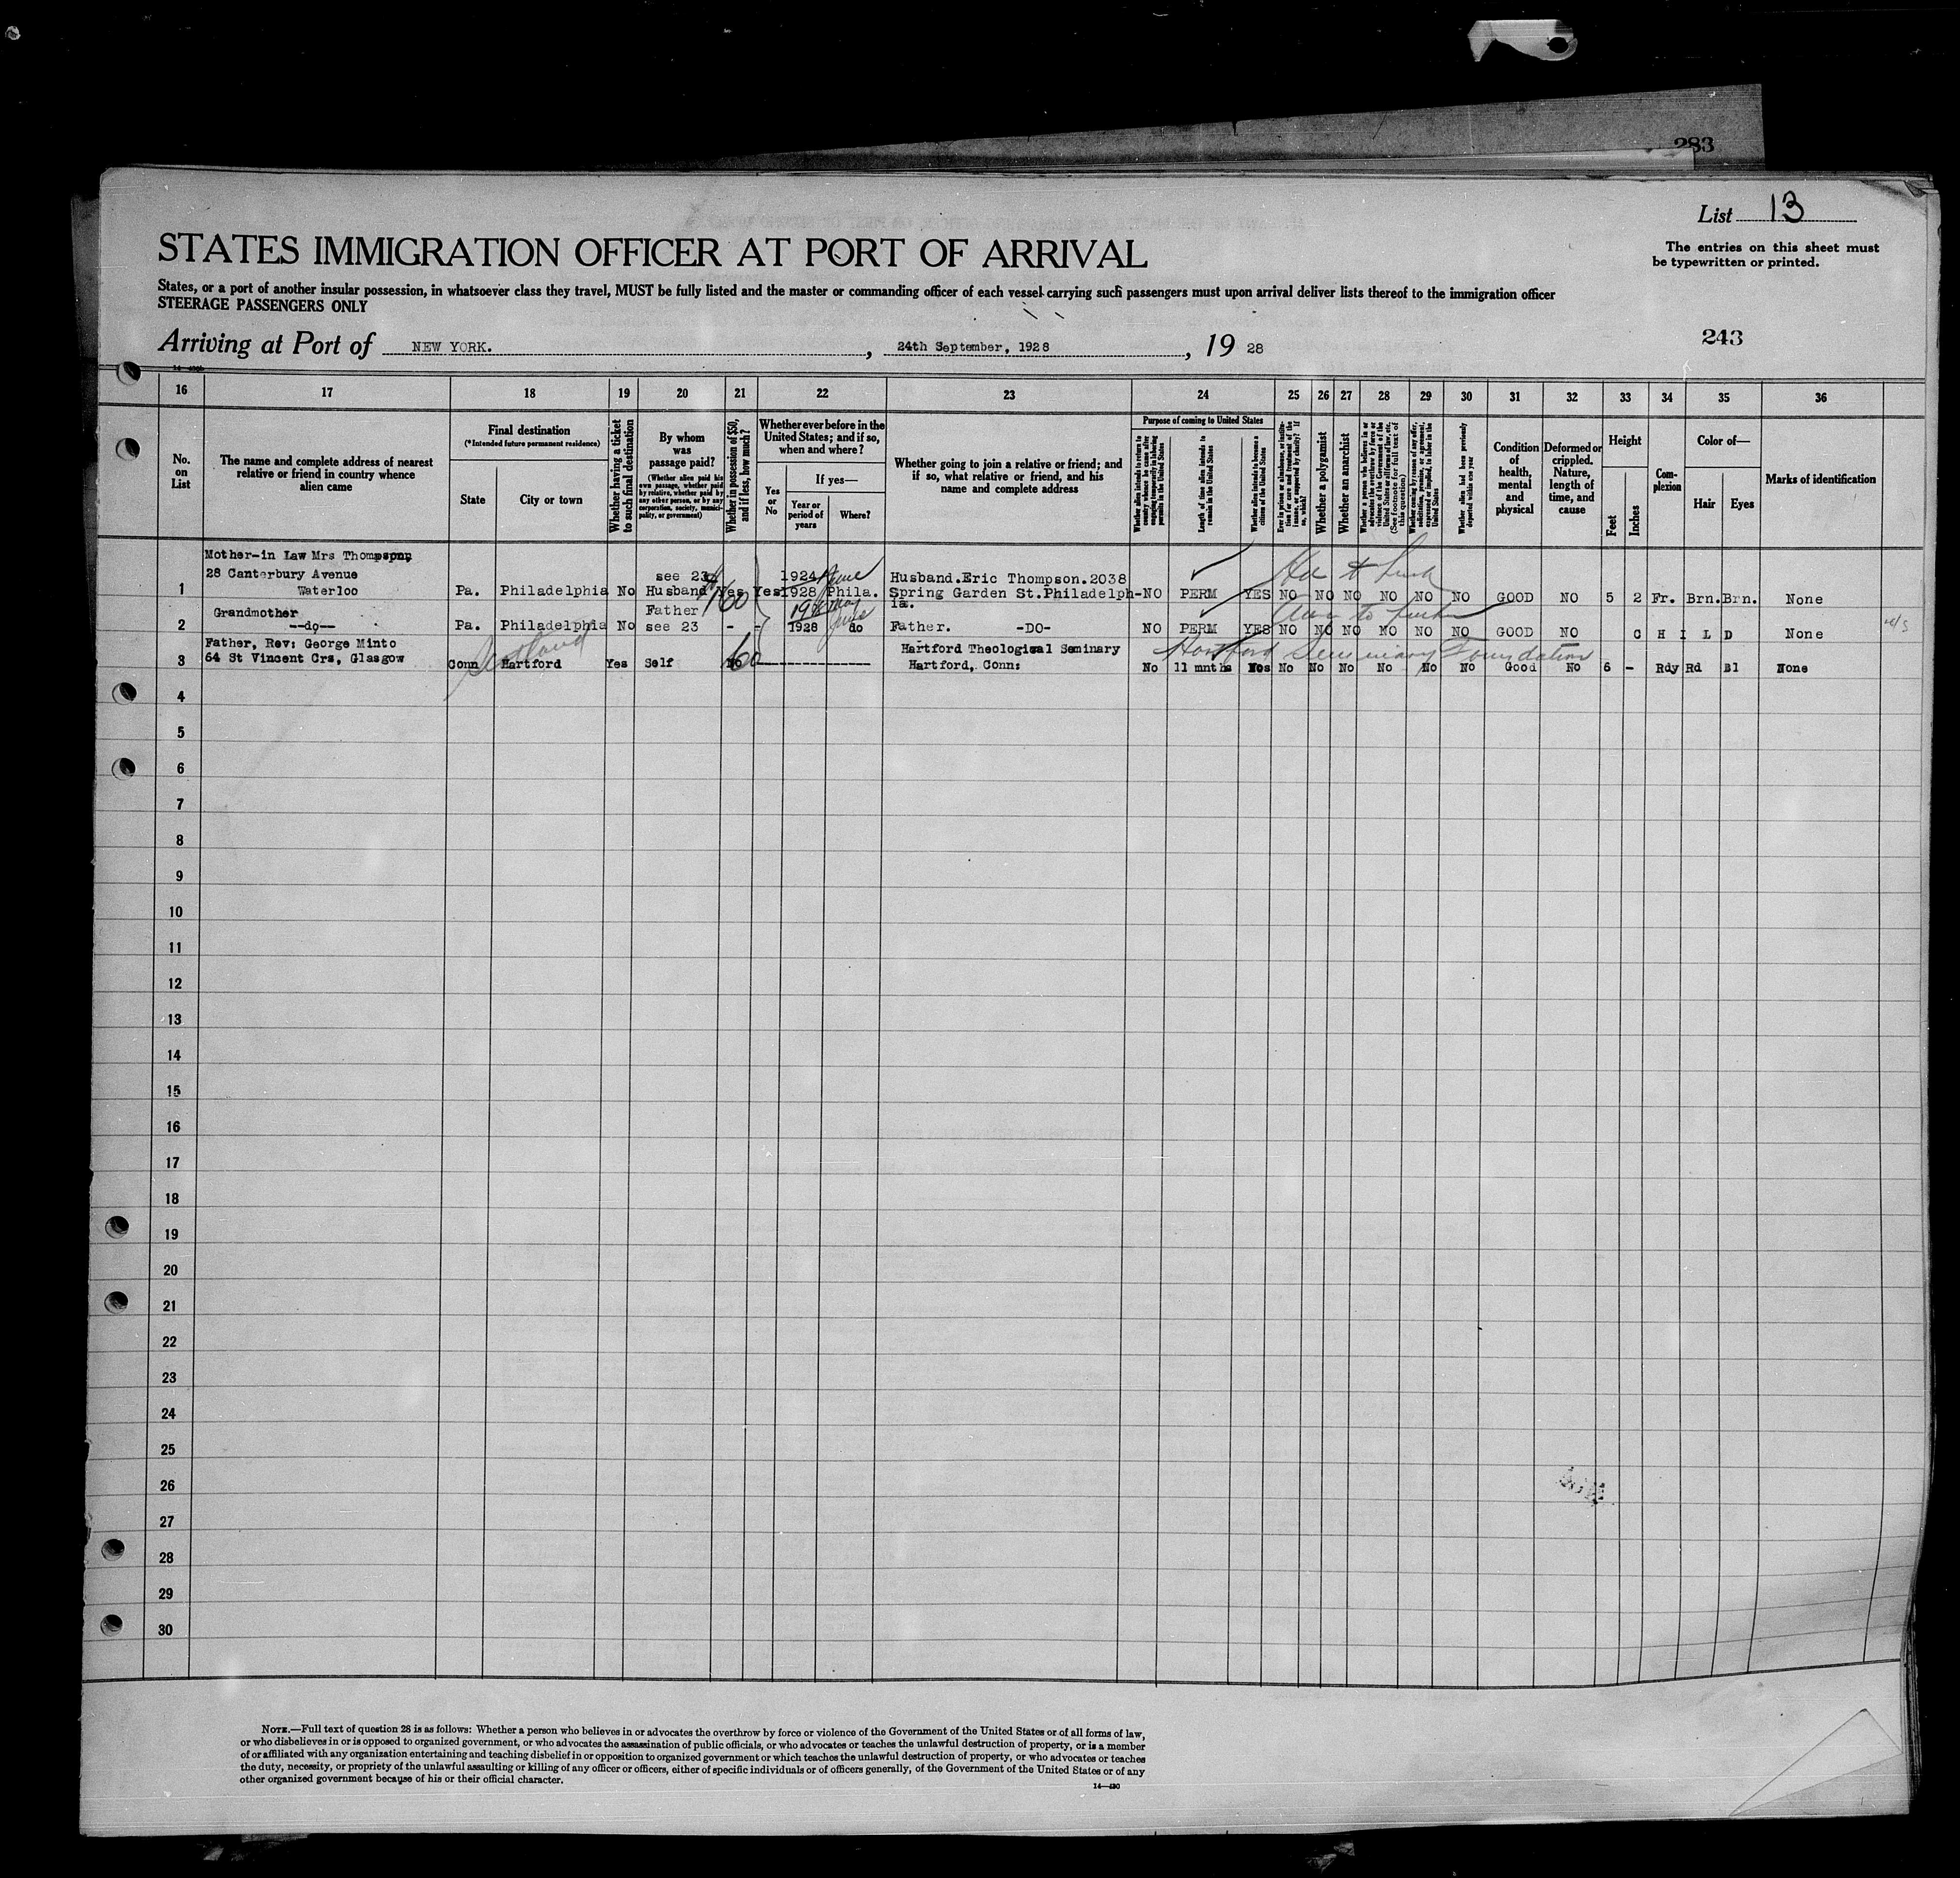 283
List 13
STATES IMMIGRATION OFFICER AT PORT OF ARRIVAL
The entries on this sheet must
be typewritten or printed.
States, or a port of another insular possession, in whatsoever class they travel, MUST be fully listed and the master or commanding officer of each vessel carrying such passengers must upon arrival deliver lists thereof to the immigration officer
STEERAGE PASSENGERS ONLY
Arriving at Port of NEW YORK. , 24th September, 1928 , 19 28
243
16 17 18 19 20 21 22 23 24 25 26 27 28 29 30 31 32 33 34 35 36
No. on List
The name and complete address of nearest relative or friend in country whence alien came
Final destination
(*Intended future permanent residence)
State
City or town
Whether having a ticket to such final destination
By whom was passage paid?
(Whether alien paid his own passage, whether paid by relative, whether paid by any other person, or by any corporation, society, municipality, or government)
Whether in possession of $50, and if less, how much?
Whether ever before in the United States; and if so, when and where?
Yes or No
If yes—
Year or period of years
Where?
Whether going to join a relative or friend; and if so, what relative or friend, and his name and complete address
Purpose of coming to United States
Whether alien intends to return to country whence he came after engaging temporarily in laboring pursuits in the United States
Length of time alien intends to remain in the United States
Whether alien intends to become a citizen of the United States
Ever in prison or almshouse, or institution for care and treatment of the insane, or supported by charity? If so, which?
Whether a polygamist
Whether an anarchist
Whether a person who believes in or advocates the overthrow by force or violence of the Government of the United States or all forms of law, etc. (See footnote for full text of this question)
Whether coming by reason of any offer, solicitation, promise, or agreement, expressed or implied, to labor in the United States
Whether alien had been previously deported within one year
Condition of health, mental and physical
Deformed or crippled. Nature, length of time, and cause
Height
Feet
Inches
Complexion
Color of—
Hair
Eyes
Marks of identification
1 Mother-in Law Mrs Thompson,
28 Canterbury Avenue
Waterloo
Pa. Philadelphia No see 23 Husband Yes $160 Yes 1924 1928 June Phila. Husband.Eric Thompson.2038
Spring Garden St.Philadelph-
ia.
NO PERM YES NO NO NO NO NO NO GOOD NO 5 2 Fr. Brn. Brn. None
2 Grandmother
--do--
Pa. Philadelphia No Father see 23 - - 1928 do Father. -DO- NO PERM YES NO NO NO NO NO NO GOOD NO CHILD None
3 Father, Rev: George Minto
64 St Vincent Crs, Glasgow
Scotland
Conn Hartford Yes Self No 60 Hartford Theological Seminary
Hartford, Conn:
Hartford Seminary Foundation
No 11 mnths Yes No No No No No No Good No 6 - Rdy Rd Bl None
4
5
6
7
8
9
10
11
12
13
14
15
16
17
18
19
20
21
22
23
24
25
26
27
28
29
30
NOTE.—Full text of question 28 is as follows: Whether a person who believes in or advocates the overthrow by force or violence of the Government of the United States or of all forms of law,
or who disbelieves in or is opposed to organized government, or who advocates the assassination of public officials, or who advocates or teaches the unlawful destruction of property, or is a member
of or affiliated with any organization entertaining and teaching disbelief in or opposition to organized government or which teaches the unlawful destruction of property, or who advocates or teaches
the duty, necessity, or propriety of the unlawful assaulting or killing of any officer or officers, either of specific individuals or of officers generally, of the Government of the United States or of any
other organized government because of his or their official character.
14—430